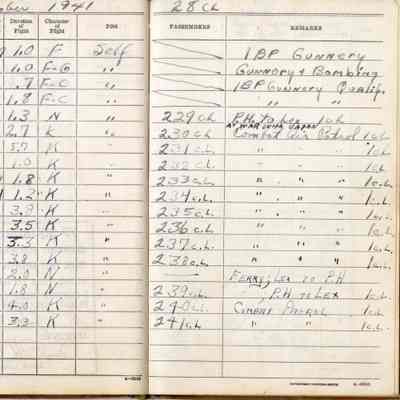 mber 1941 28 CL
Duration of Flight Character of Flight PILOT PASSENGERS REMARKS
1.0 F Self 1BP GUNNERY
1.0 F-G " GUNNERY & Bombing
.7 F-C " 1BP GUNNERY Qualif.
1.8 F-C " " "
1.3 N " 229 CL P.H. To Lex 1 CL
AT WAR WITH JAPAN
2.7 K " 230 CL Combat Air Patrol 1 CL
5.7 K " 231 CL " " " 1 CL
1.0 K " 232 CL " " " 1 CL
1.8 K " 233 CL " " " 1 CL
1.2 K " 234 CL " " " 1 CL
3.9 K " 235 CL " " " 1 CL
3.5 K " 236 CL " " " 1 CL
3.3 K " 237 CL " " " 1 CL
3.8 K " 238 CL " " " 1 CL
2.0 N " FERRY, LEX TO P.H
1.8 N " 239 CL " , P.H TO LEX 1 CL
4.0 K " 240 CL COMBAT PATROL 1 CL
3.3 K " 241 CL " " 1 CL